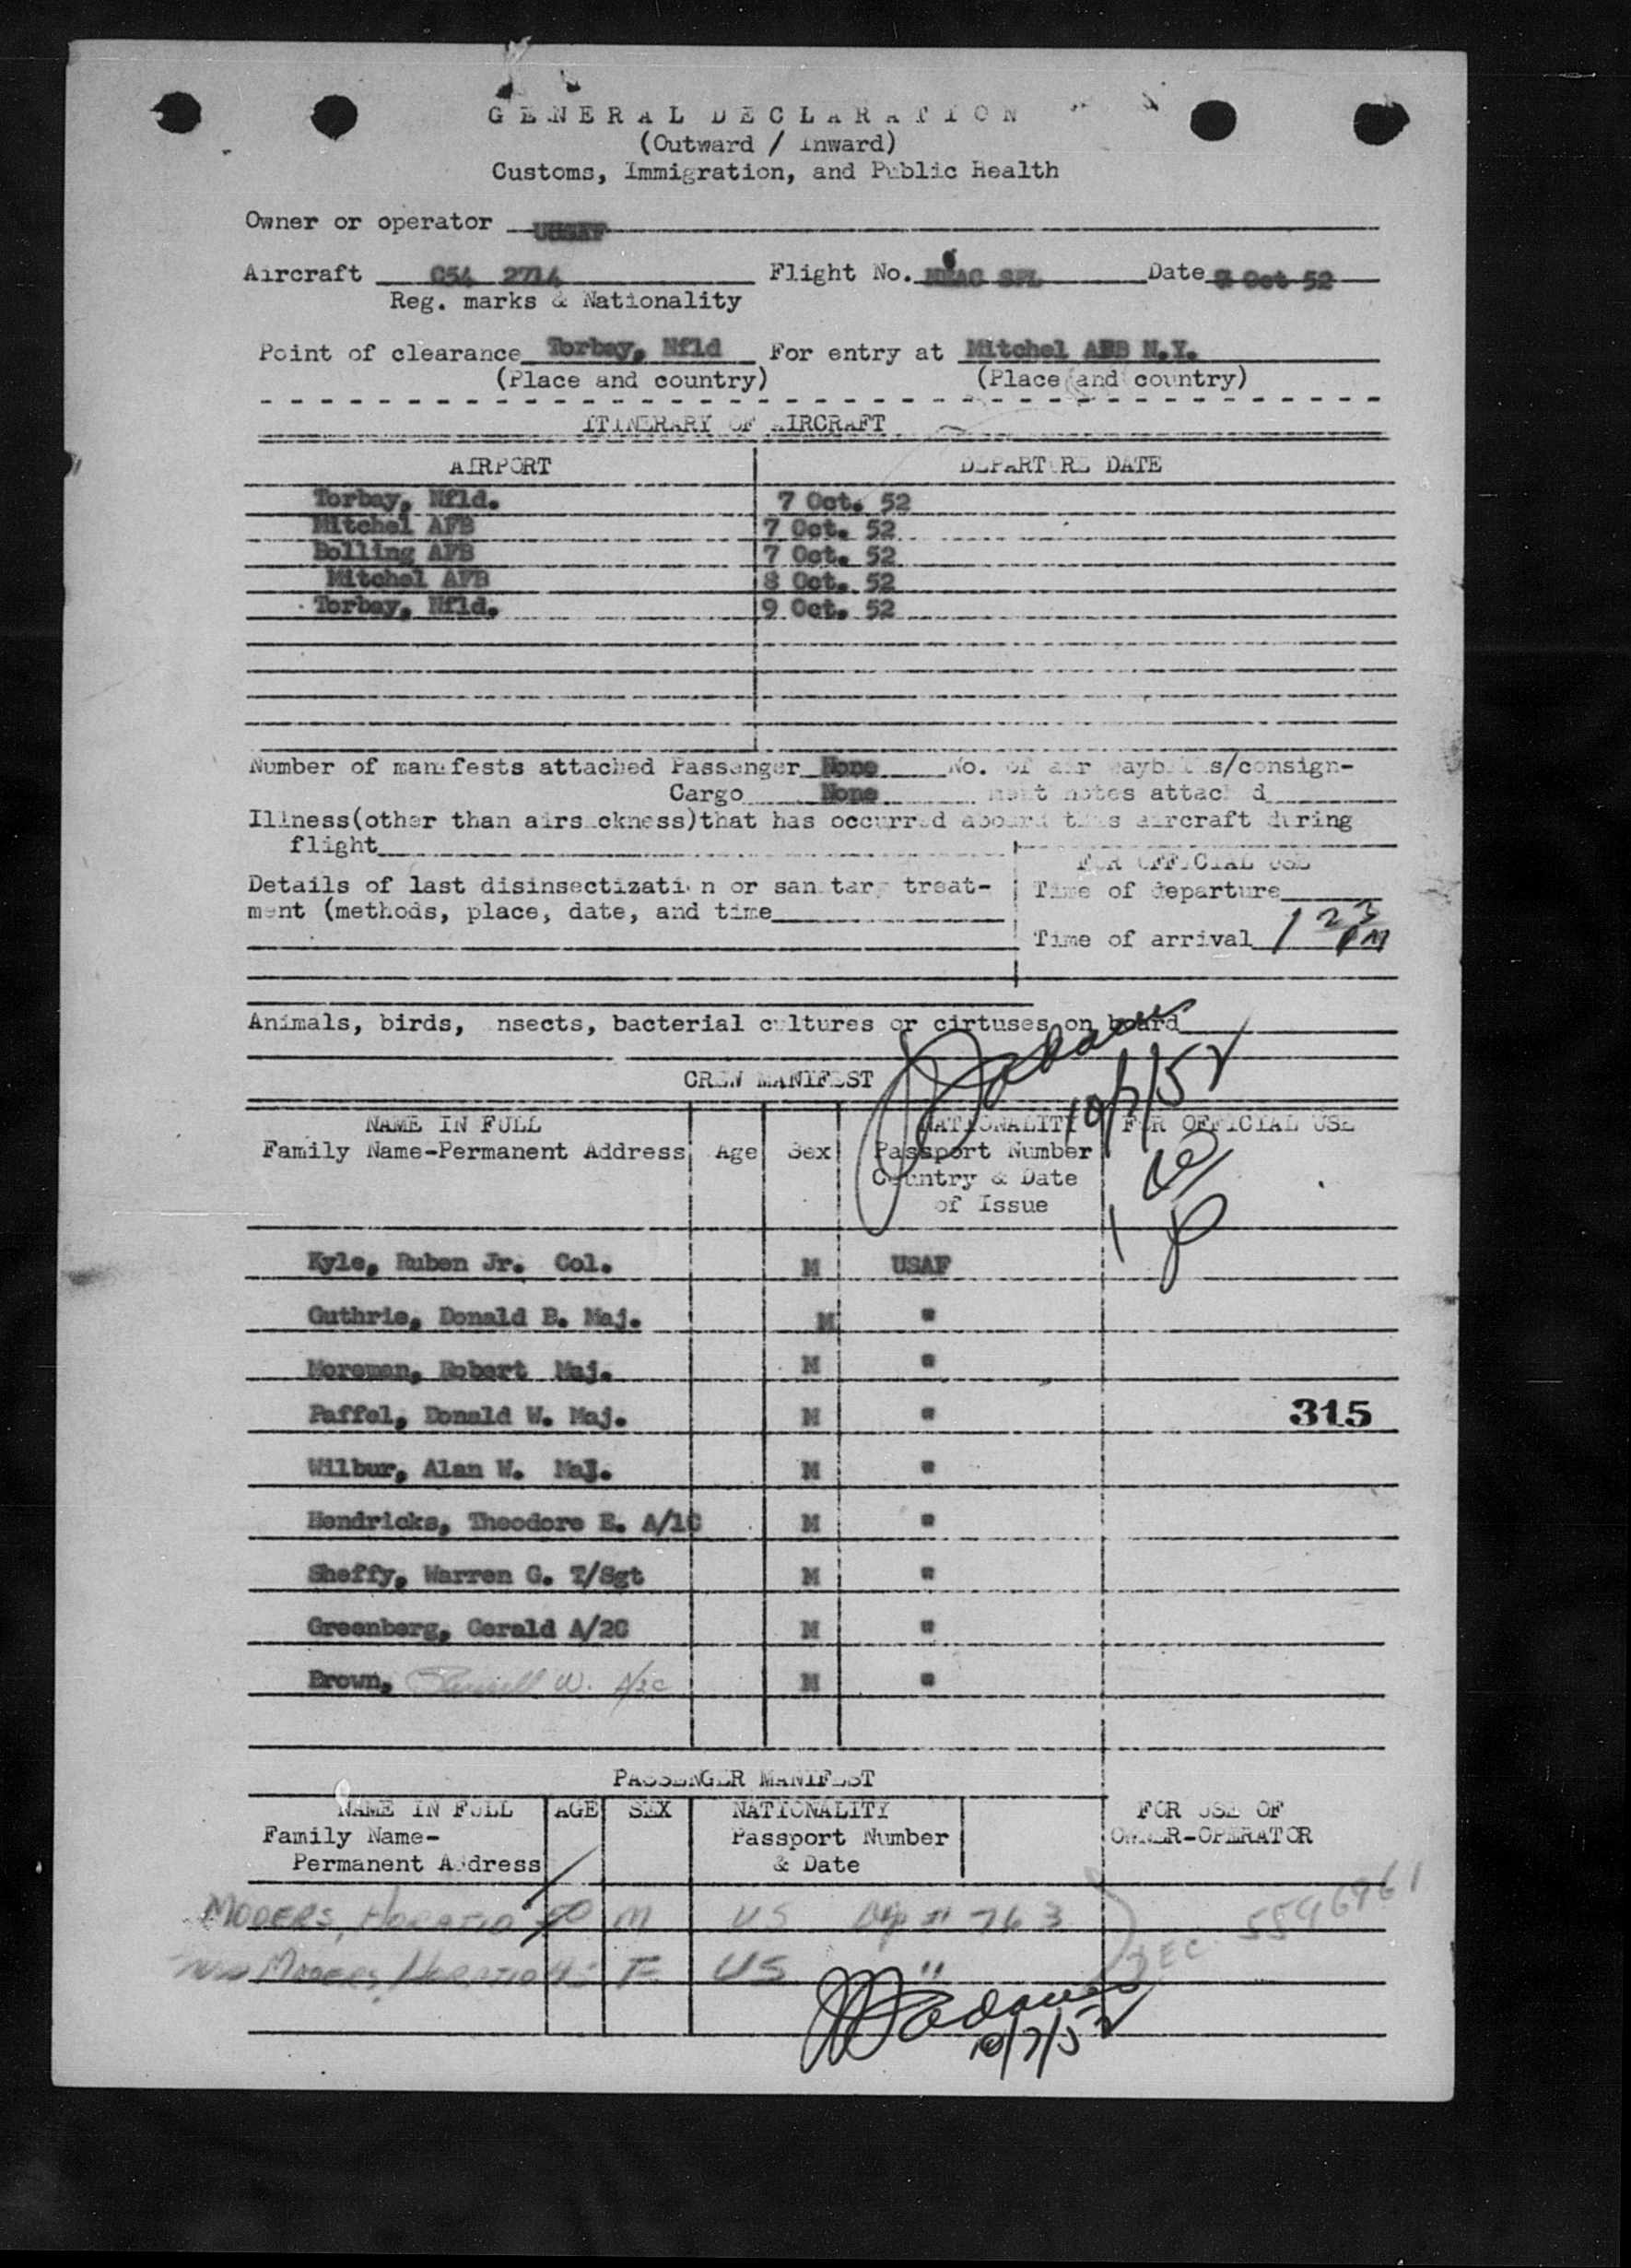 GENERAL DECLARATION
(Outward / Inward)
Customs, Immigration, and Public Health
Owner or operator USAF
Aircraft C54 2714 Flight No. NEAC SPL Date Oct 52
Reg. marks & Nationality
Point of clearance Torbay, Nfld For entry at Mitchel AFB N.Y.
(Place and country) (Place and country)
ITINERARY OF AIRCRAFT
AIRPORT DEPARTURE DATE
Torbay, Nfld. 7 Oct. 52
Mitchel AFB 7 Oct. 52
Bolling AFB 7 Oct. 52
Mitchel AFB 8 Oct. 52
Torbay, Nfld. 9 Oct. 52
Number of manifests attached Passenger None No. of air waybills/consign-
Cargo None ment notes attached
Illness(other than airsickness)that has occurred aboard this aircraft during
flight
FOR OFFICIAL USE
Details of last disinsectization or sanitary treat- Time of departure
ment (methods, place, date, and time
Time of arrival 1 23 PM
Animals, birds, insects, bacterial cultures or cirtuses on board
10/7/52
CREW MANIFEST
NAME IN FULL NATIONALITY FOR OFFICIAL USE
Family Name-Permanent Address Age Sex Passport Number
Country & Date
of Issue
Kyle, Ruben Jr. Col. M USAF
Guthrie, Donald B. Maj. M "
Moreman, Robert Maj. M "
Paffel, Donald W. Maj. M " 315
Wilbur, Alan W. Maj. M "
Hendricks, Theodore E. A/1C M "
Sheffy, Warren G. T/Sgt M "
Greenberg, Gerald A/2C M "
Brown, W. A/2C M "
PASSENGER MANIFEST
NAME IN FULL AGE SEX NATIONALITY FOR USE OF
Family Name- Passport Number OWNER-OPERATOR
Permanent Address & Date
MOOERS, HORATIO 50 M US 763
MOOERS, HORATIO F US "
10/7/52